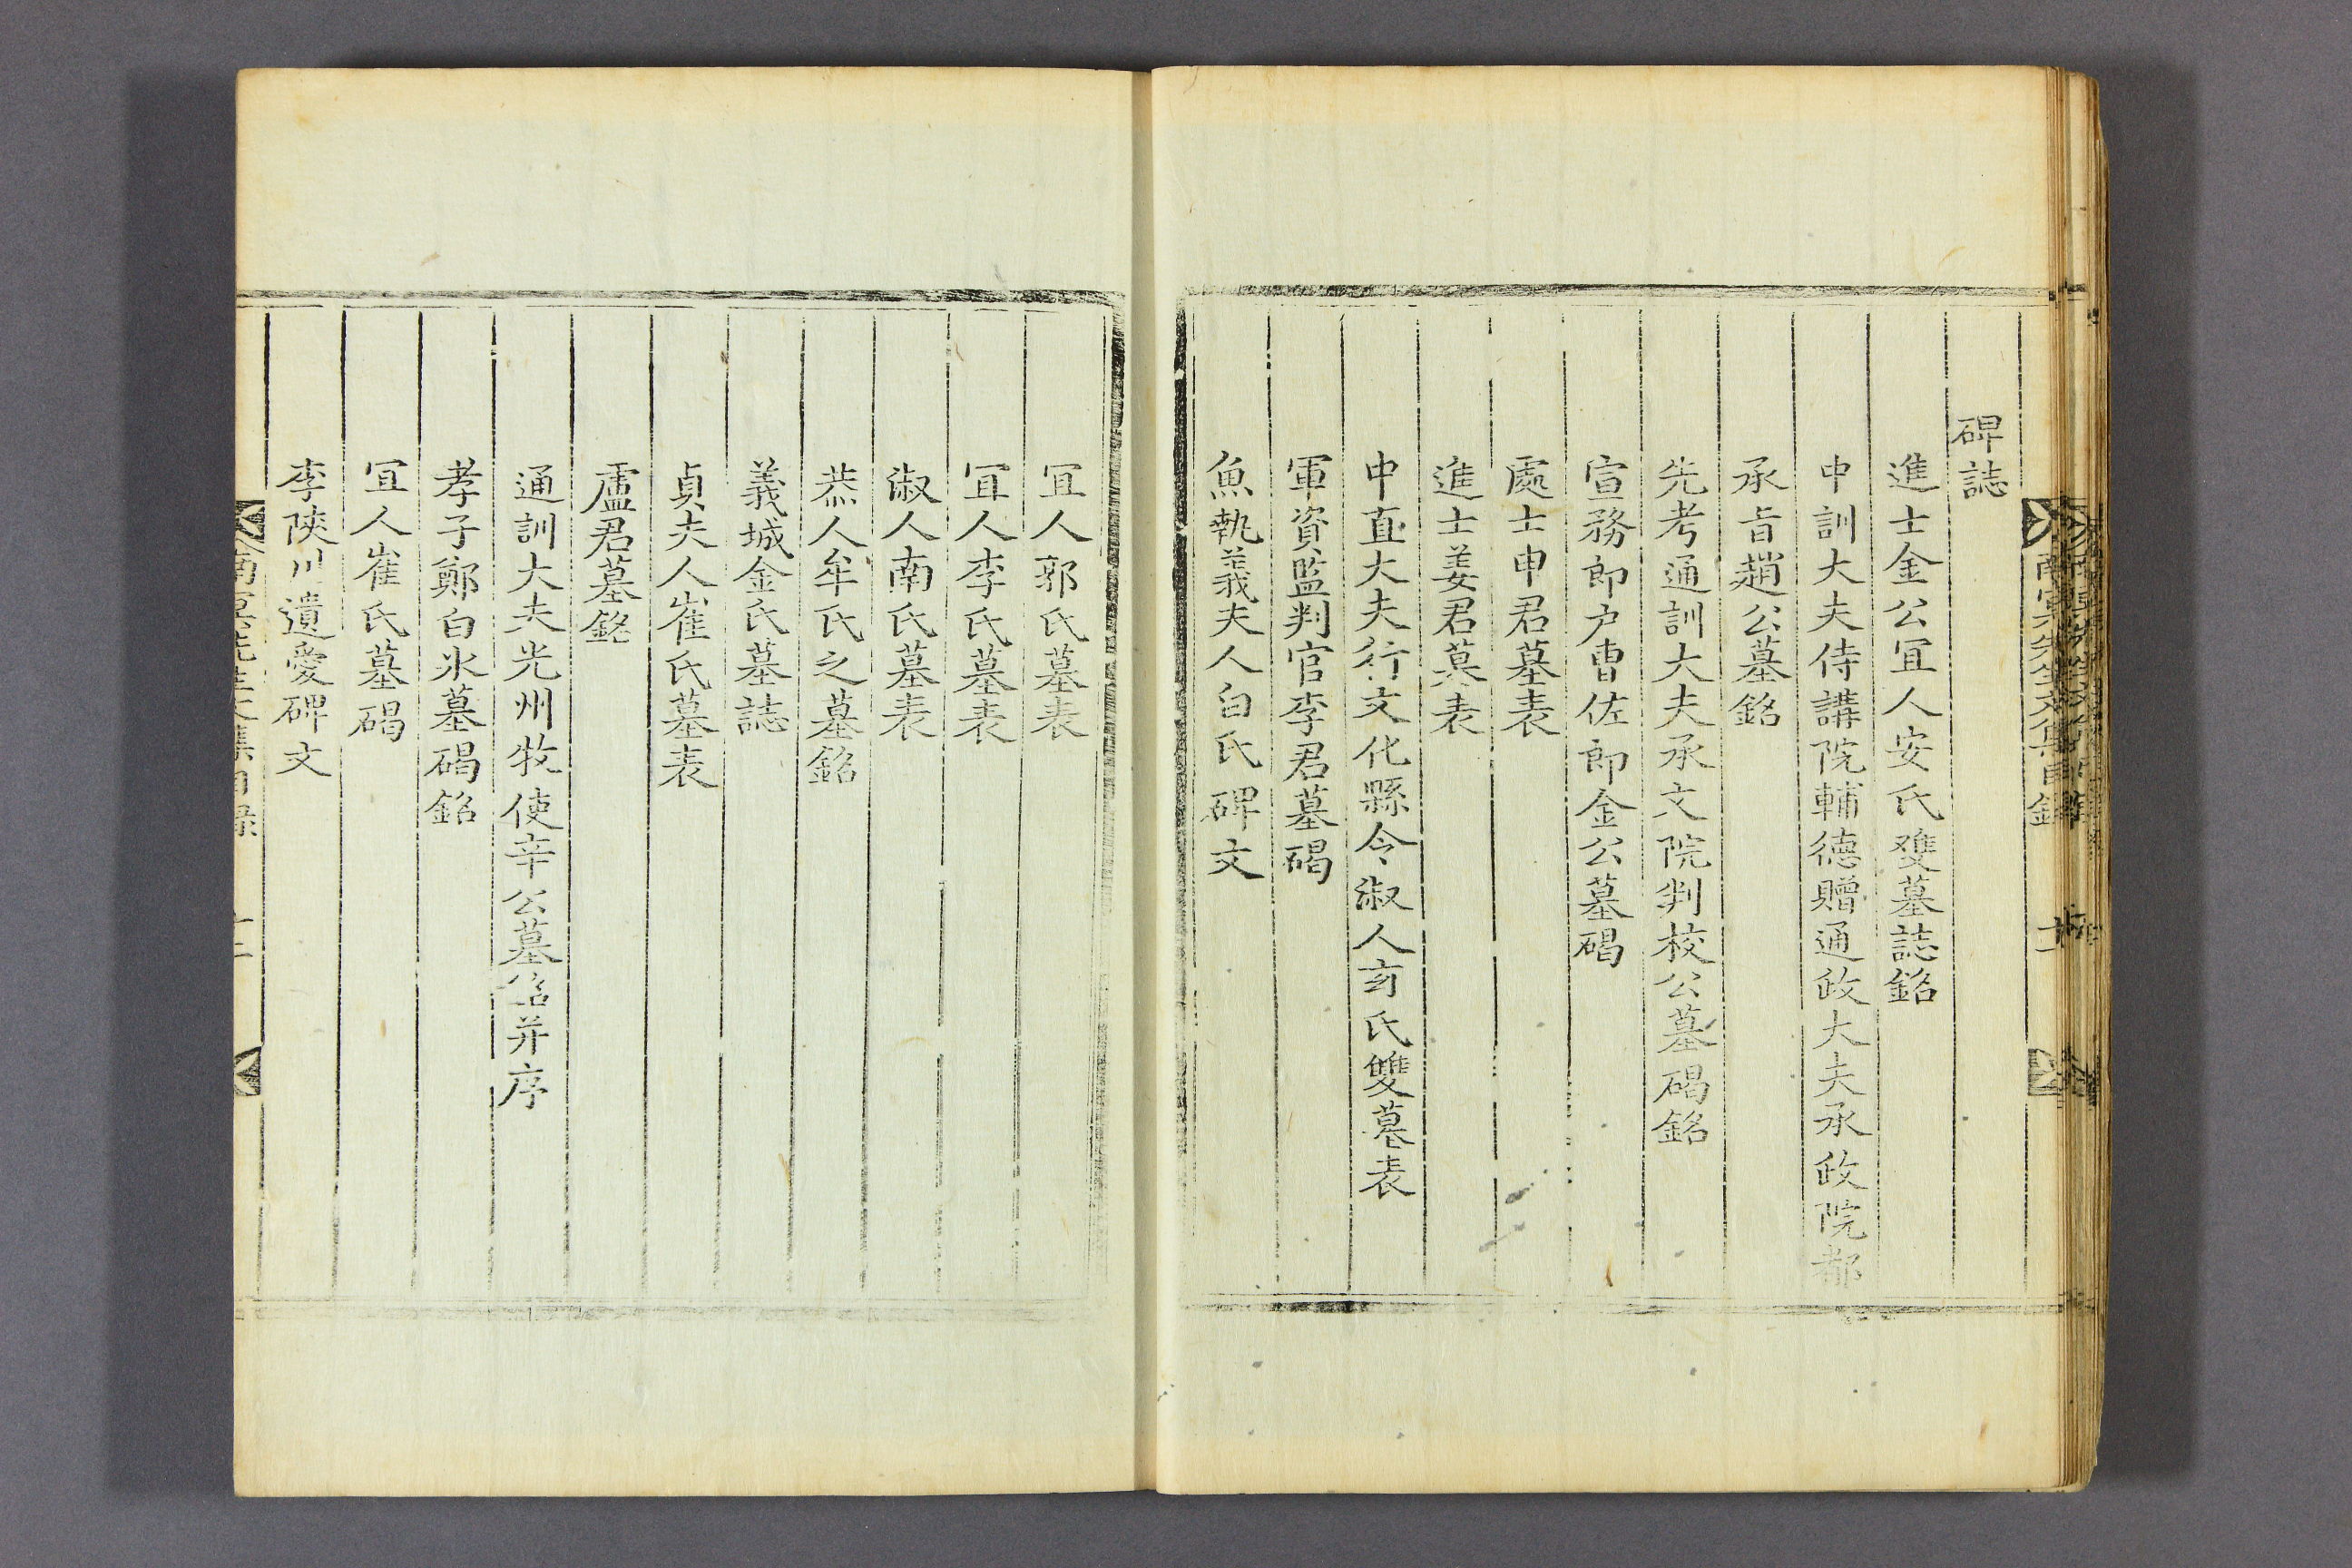 碑誌
進士金公冝人安氏雙墓誌銘
中訓大夫侍講院輔德贈通政大夫承政院都
承旨趙公墓銘
先考通訓大夫承文院判校公墓碣銘
宣務郎户曹佐郎金公墓碣
處士申君墓表
進士姜君墓表
中直大夫行文化縣令淑人文氏雙墓表
軍資監判官李君墓碣
魚執義夫人白氏碑文
冝人郭氏墓表
冝人李氏墓表
淑人南氏墓表
恭人牟氏之墓銘
義城金氏墓誌
貞夫人崔氏墓表
盧君墓銘
通訓大夫光州牧使辛公墓銘并序
孝子鄭白氷墓碣銘
冝人崔氏墓碣
李陜川遺愛碑文